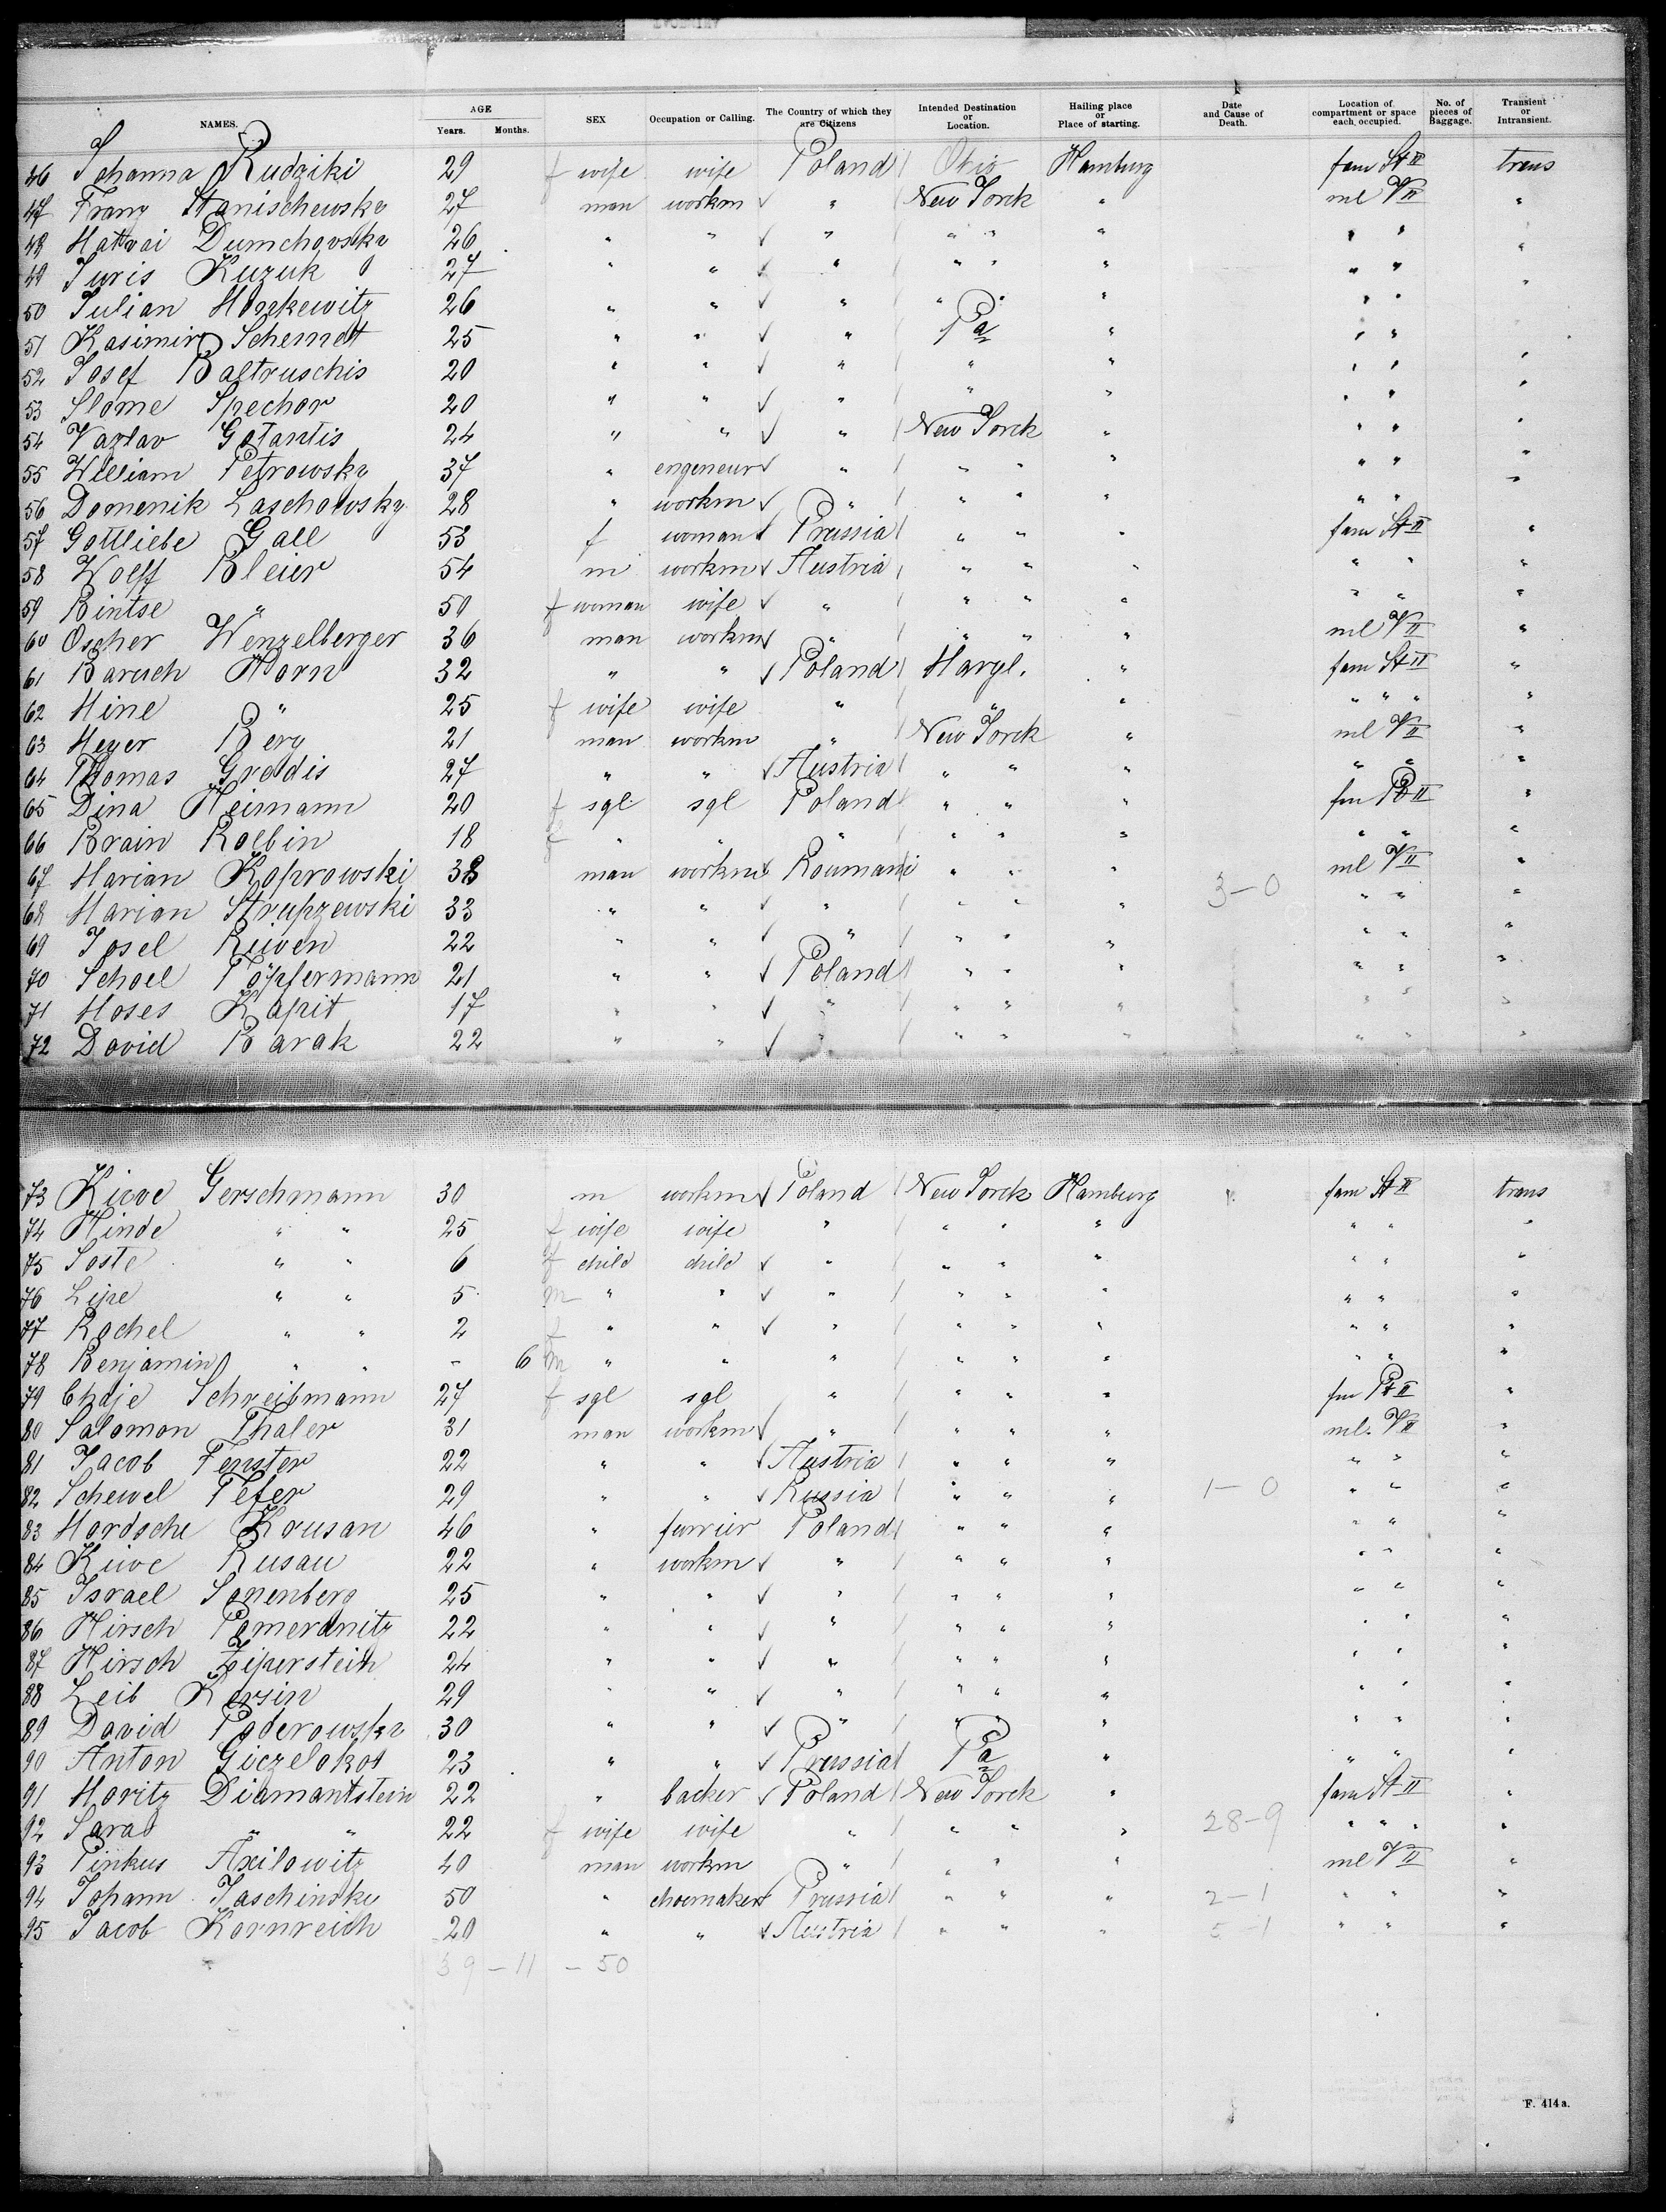 NAMES. AGE Years. Months. SEX Occupation or Calling. The Country of which they are Citizens Intended Destination or Location. Hailing place or Place of starting. Date and Cause of Death. Location of compartment or space each occupied. No. of pieces of Baggage. Transient or Intransient.
46 Johanna Rudziki 29 f wife wife Poland Ohio Hamburg fam St II trans
47 Franz Stanischewsky 27 man workm " New Yorck " ml V II "
48 Matwai Dumchovsky 26 " " " " " " " " "
49 Juris Kuzuk 27 " " " " " " " " "
50 Julian Morkewitz 26 " " " " " " " "
51 Kasimir Schemett 25 " " " Pa " " "
52 Josef Baltruschis 20 " " " " " " " "
53 Slome Spechor 20 " " " " " " " "
54 Vazlav Gotantis 24 " " " New Yorck " " " "
55 William Petrowsky 37 " engeneur " " " " " " "
56 Domenik Laschowsky 28 " workm " " " " " "
57 Gottliebe Gall 53 f woman Prussia " " " fam St II "
58 Wolff Bleier 54 m workm Austria " " " " " "
59 Rintse " 50 f woman wife " " " " " " "
60 Oscher Wenzelberger 36 man workm " " " " ml V II "
61 Baruch Horn 32 " " Poland Maryl. " fam St II "
62 Mine " 25 f wife wife " " " " " " "
63 Meyer Berg 21 man workm " New Yorck " ml V II "
64 Thomas Gredis 27 " " Austria " " " " " "
65 Dina Heimann 20 f sgl sgl Poland " " " fm Pt II "
66 Brain Rolbin 18 f " " " " " " " " "
67 Marian Koprowski 38 man workm Roumani " " " ml V II "
68 Marian Strupzewski 33 " " " " " " 3-0 " " "
69 Josel Ruwen 22 " " " " " " " " "
70 Schoel Töpfermann 21 " " Poland " " " " " "
71 Moses Kaprit 17 " " " " " " " " "
72 David Barak 22 " " " " " " " " "
73 Kiwe Gerschmann 30 m workm Poland New Yorck Hamburg fam St II trans
74 Hinde " " 25 f wife wife " " " " " " "
75 Soste " " 6 f child child " " " " " " "
76 Lipe " " 5 m " " " " " " " " "
77 Rachel " " 2 f " " " " " " " " "
78 Benjamin " " - 6 m " " " " " " " " "
79 Chaje Schreibmann 27 f sgl sgl " " " " fm Pt II "
80 Salomon Thaler 31 man workm " " " " ml. V II "
81 Jacob Fenster 22 " " Austria " " " " " "
82 Schewel Tefer 29 " " Russia " " " 1-0 " " "
83 Mordsche Krusan 46 " furrier Poland " " " " " "
84 Kiwe Rusau 22 " workm " " " " " " "
85 Israel Sonenberg 25 " " " " " " " " "
86 Hirsch Pomeranitz 22 " " " " " " " " "
87 Hirsch Ziperstein 24 " " " " " " " " "
88 Leib Kersin 29 " " " " " " " " "
89 David Poderowsky 30 " " " " " " " " "
90 Anton Giczelokos 23 " " Prussia Pa " " " "
91 Moritz Diamantstein 22 " backer Poland New Yorck " fam St II "
92 Sara " " 22 f wife wife " " " " 28-9 " " " "
93 Pinkus Axilowitz 40 man workm " " " " ml V II "
94 Johann Jaschinsky 50 " choemaker Prussia " " " 2-1 " " "
95 Jacob Kornreich 20 " " Austria " " " 5-1 " " "
39-11-50
F. 414 a.